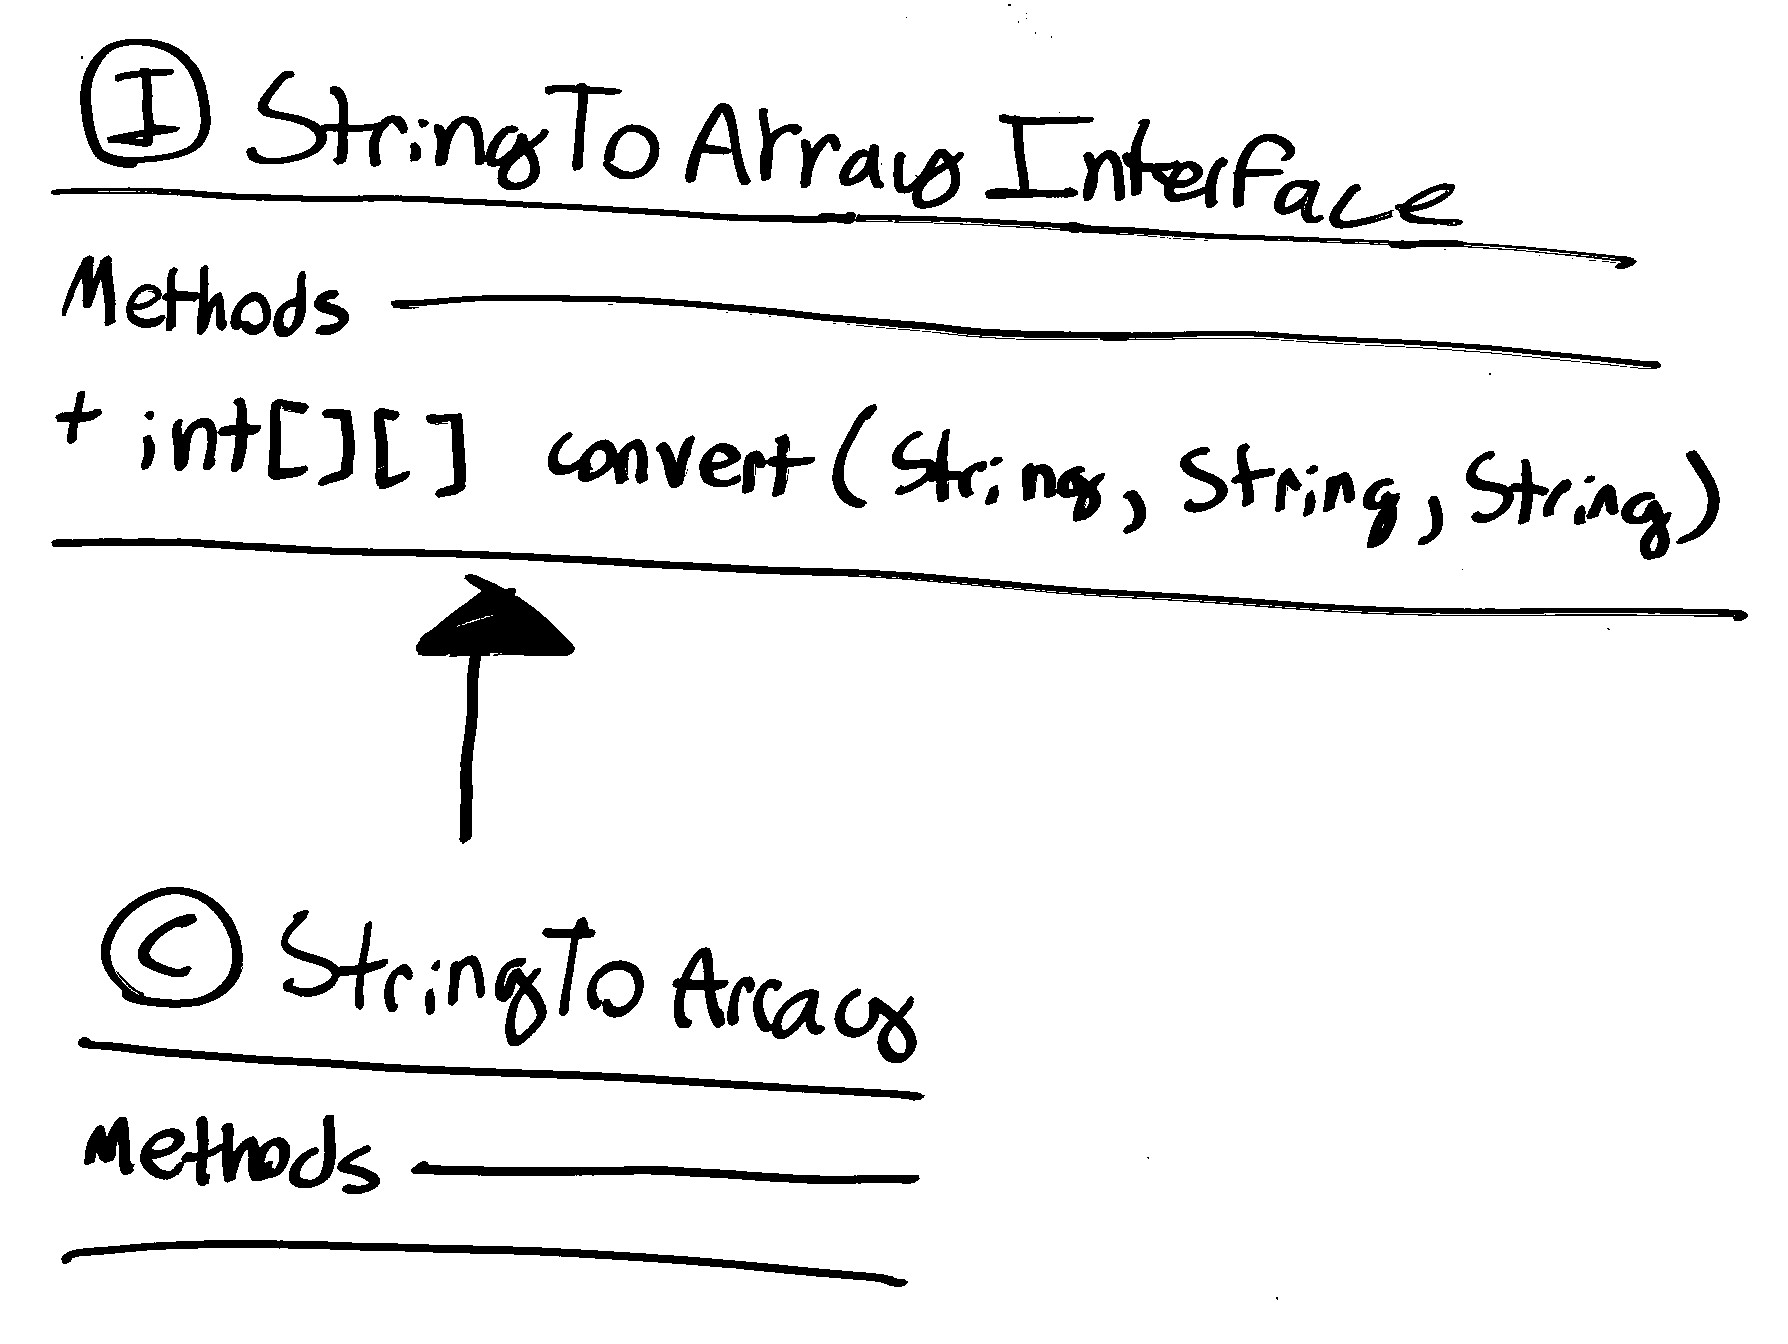 I StringToArrayInterface
Methods
+ int[][] convert(String, String, String)
C StringToArray
Methods